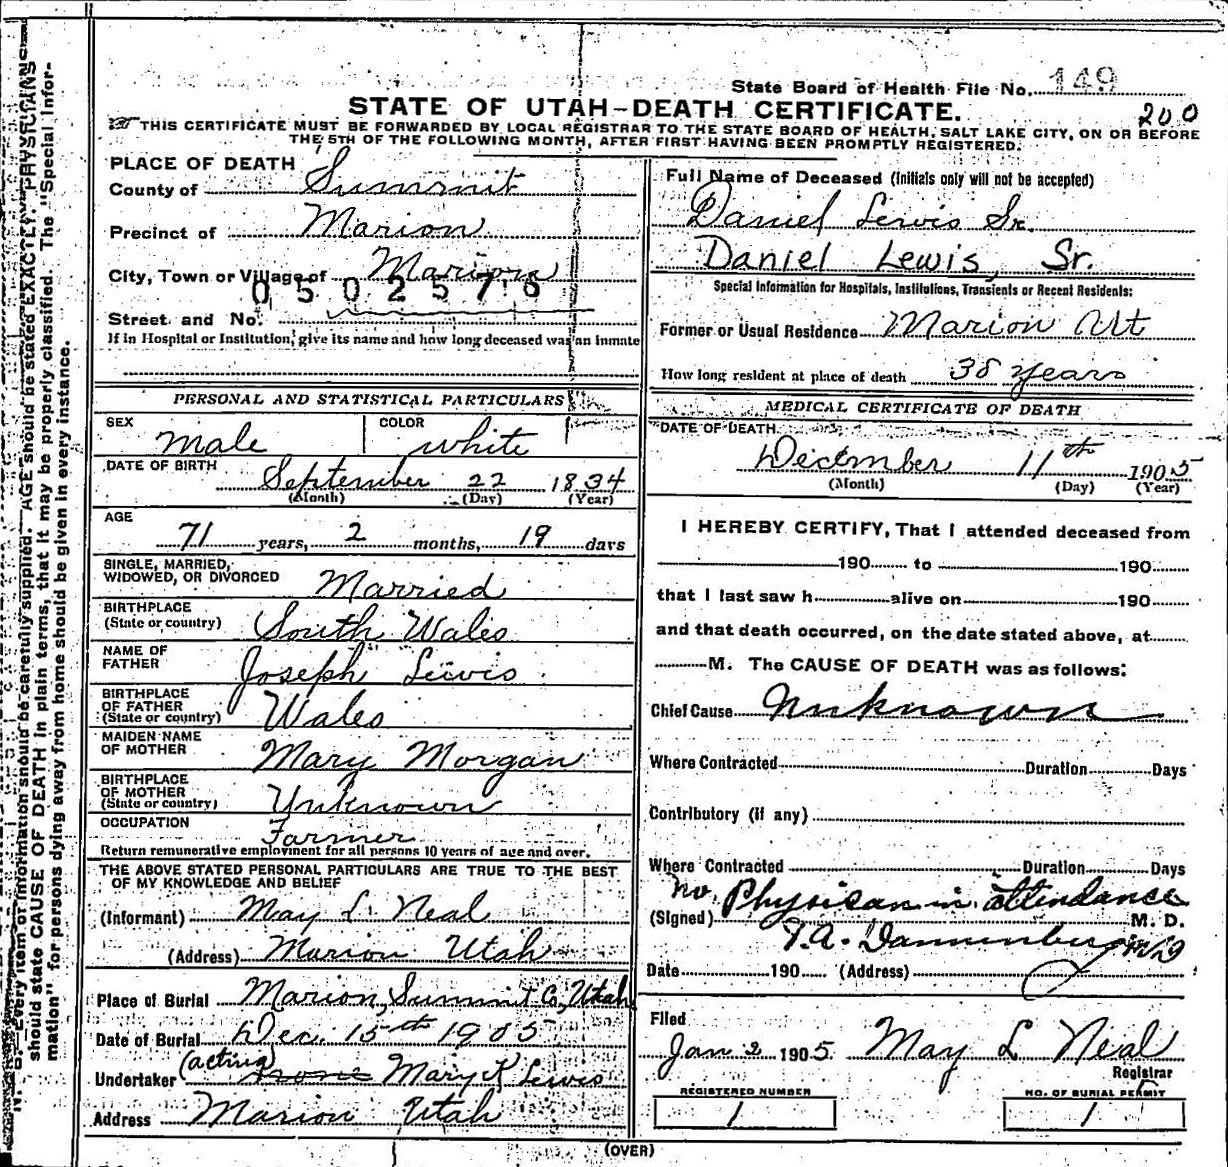 State Board of Health File No. 149
200
STATE OF UTAH—DEATH CERTIFICATE.
THIS CERTIFICATE MUST BE FORWARDED BY LOCAL REGISTRAR TO THE STATE BOARD OF HEALTH, SALT LAKE CITY, ON OR BEFORE
THE 5TH OF THE FOLLOWING MONTH, AFTER FIRST HAVING BEEN PROMPTLY REGISTERED.
PLACE OF DEATH
County of Summit
Precinct of Marion
City, Town or Village of Marion
0502576
Street and No.
If in Hospital or Institution, give its name and how long deceased was an inmate
PERSONAL AND STATISTICAL PARTICULARS
SEX Male COLOR white
DATE OF BIRTH September 22 1834
(Month) (Day) (Year)
AGE
71 years, 2 months, 19 days
SINGLE, MARRIED,
WIDOWED, OR DIVORCED Married
BIRTHPLACE
(State or country) South Wales
NAME OF
FATHER Joseph Lewis
BIRTHPLACE
OF FATHER
(State or country) Wales
MAIDEN NAME
OF MOTHER Mary Morgan
BIRTHPLACE
OF MOTHER
(State or country) Unknown
OCCUPATION Farmer
Return remunerative employment for all persons 10 years of age and over.
THE ABOVE STATED PERSONAL PARTICULARS ARE TRUE TO THE BEST
OF MY KNOWLEDGE AND BELIEF
(Informant) May L. Neal
(Address) Marion Utah
Place of Burial Marion, Summit Co, Utah
Date of Burial Dec. 15th 1905
(acting)
Undertaker none Mary K Lewis
Address Marion Utah
Full Name of Deceased (Initials only will not be accepted)
Daniel Lewis Sr.
Daniel Lewis, Sr.
Special Information for Hospitals, Institutions, Transients or Recent Residents:
Former or Usual Residence Marion Ut
How long resident at place of death 38 years
MEDICAL CERTIFICATE OF DEATH
DATE OF DEATH
December 11th 1905
(Month) (Day) (Year)
I HEREBY CERTIFY, That I attended deceased from
190 to 190
that I last saw h alive on 190
and that death occurred, on the date stated above, at
M. The CAUSE OF DEATH was as follows:
Chief Cause Unknown
Where Contracted Duration Days
Contributory (if any)
Where Contracted Duration Days
no Physican in attendance
(Signed) M. D.
Date 190 (Address)
Filed
Jan 2 1905 May L Neal
Registrar
REGISTERED NUMBER
1
NO. OF BURIAL PERMIT
1
(OVER)
should state CAUSE OF DEATH in plain terms, that it may be properly classified. The "Special Infor-
mation" for persons dying away from home should be given in every instance.